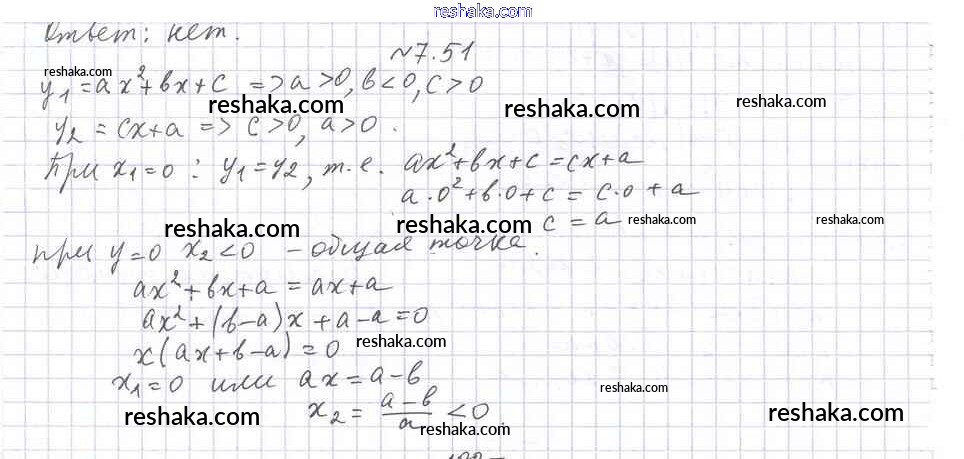 reshaka.com
Ответ: нет.
№7.51
reshaka.com
y₁ = ax² + bx + c => a > 0, b < 0, c > 0
reshaka.com
reshaka.com
reshaka.com
y₂ = cx + a => c > 0, a > 0.
При x₁ = 0 : y₁ = y₂, т.е. ax² + bx + c = cx + a
a · 0² + b · 0 + c = c · 0 + a
reshaka.com
c = a
reshaka.com
reshaka.com
при y = 0 x₂ < 0 – общая точка.
reshaka.com
ax² + bx + a = ax + a
ax² + (b – a)x + a – a = 0
reshaka.com
x(ax + b – a) = 0
x₁ = 0 или ax = a – b
reshaka.com
reshaka.com
x₂ = (a – b)/a < 0.
reshaka.com
reshaka.com